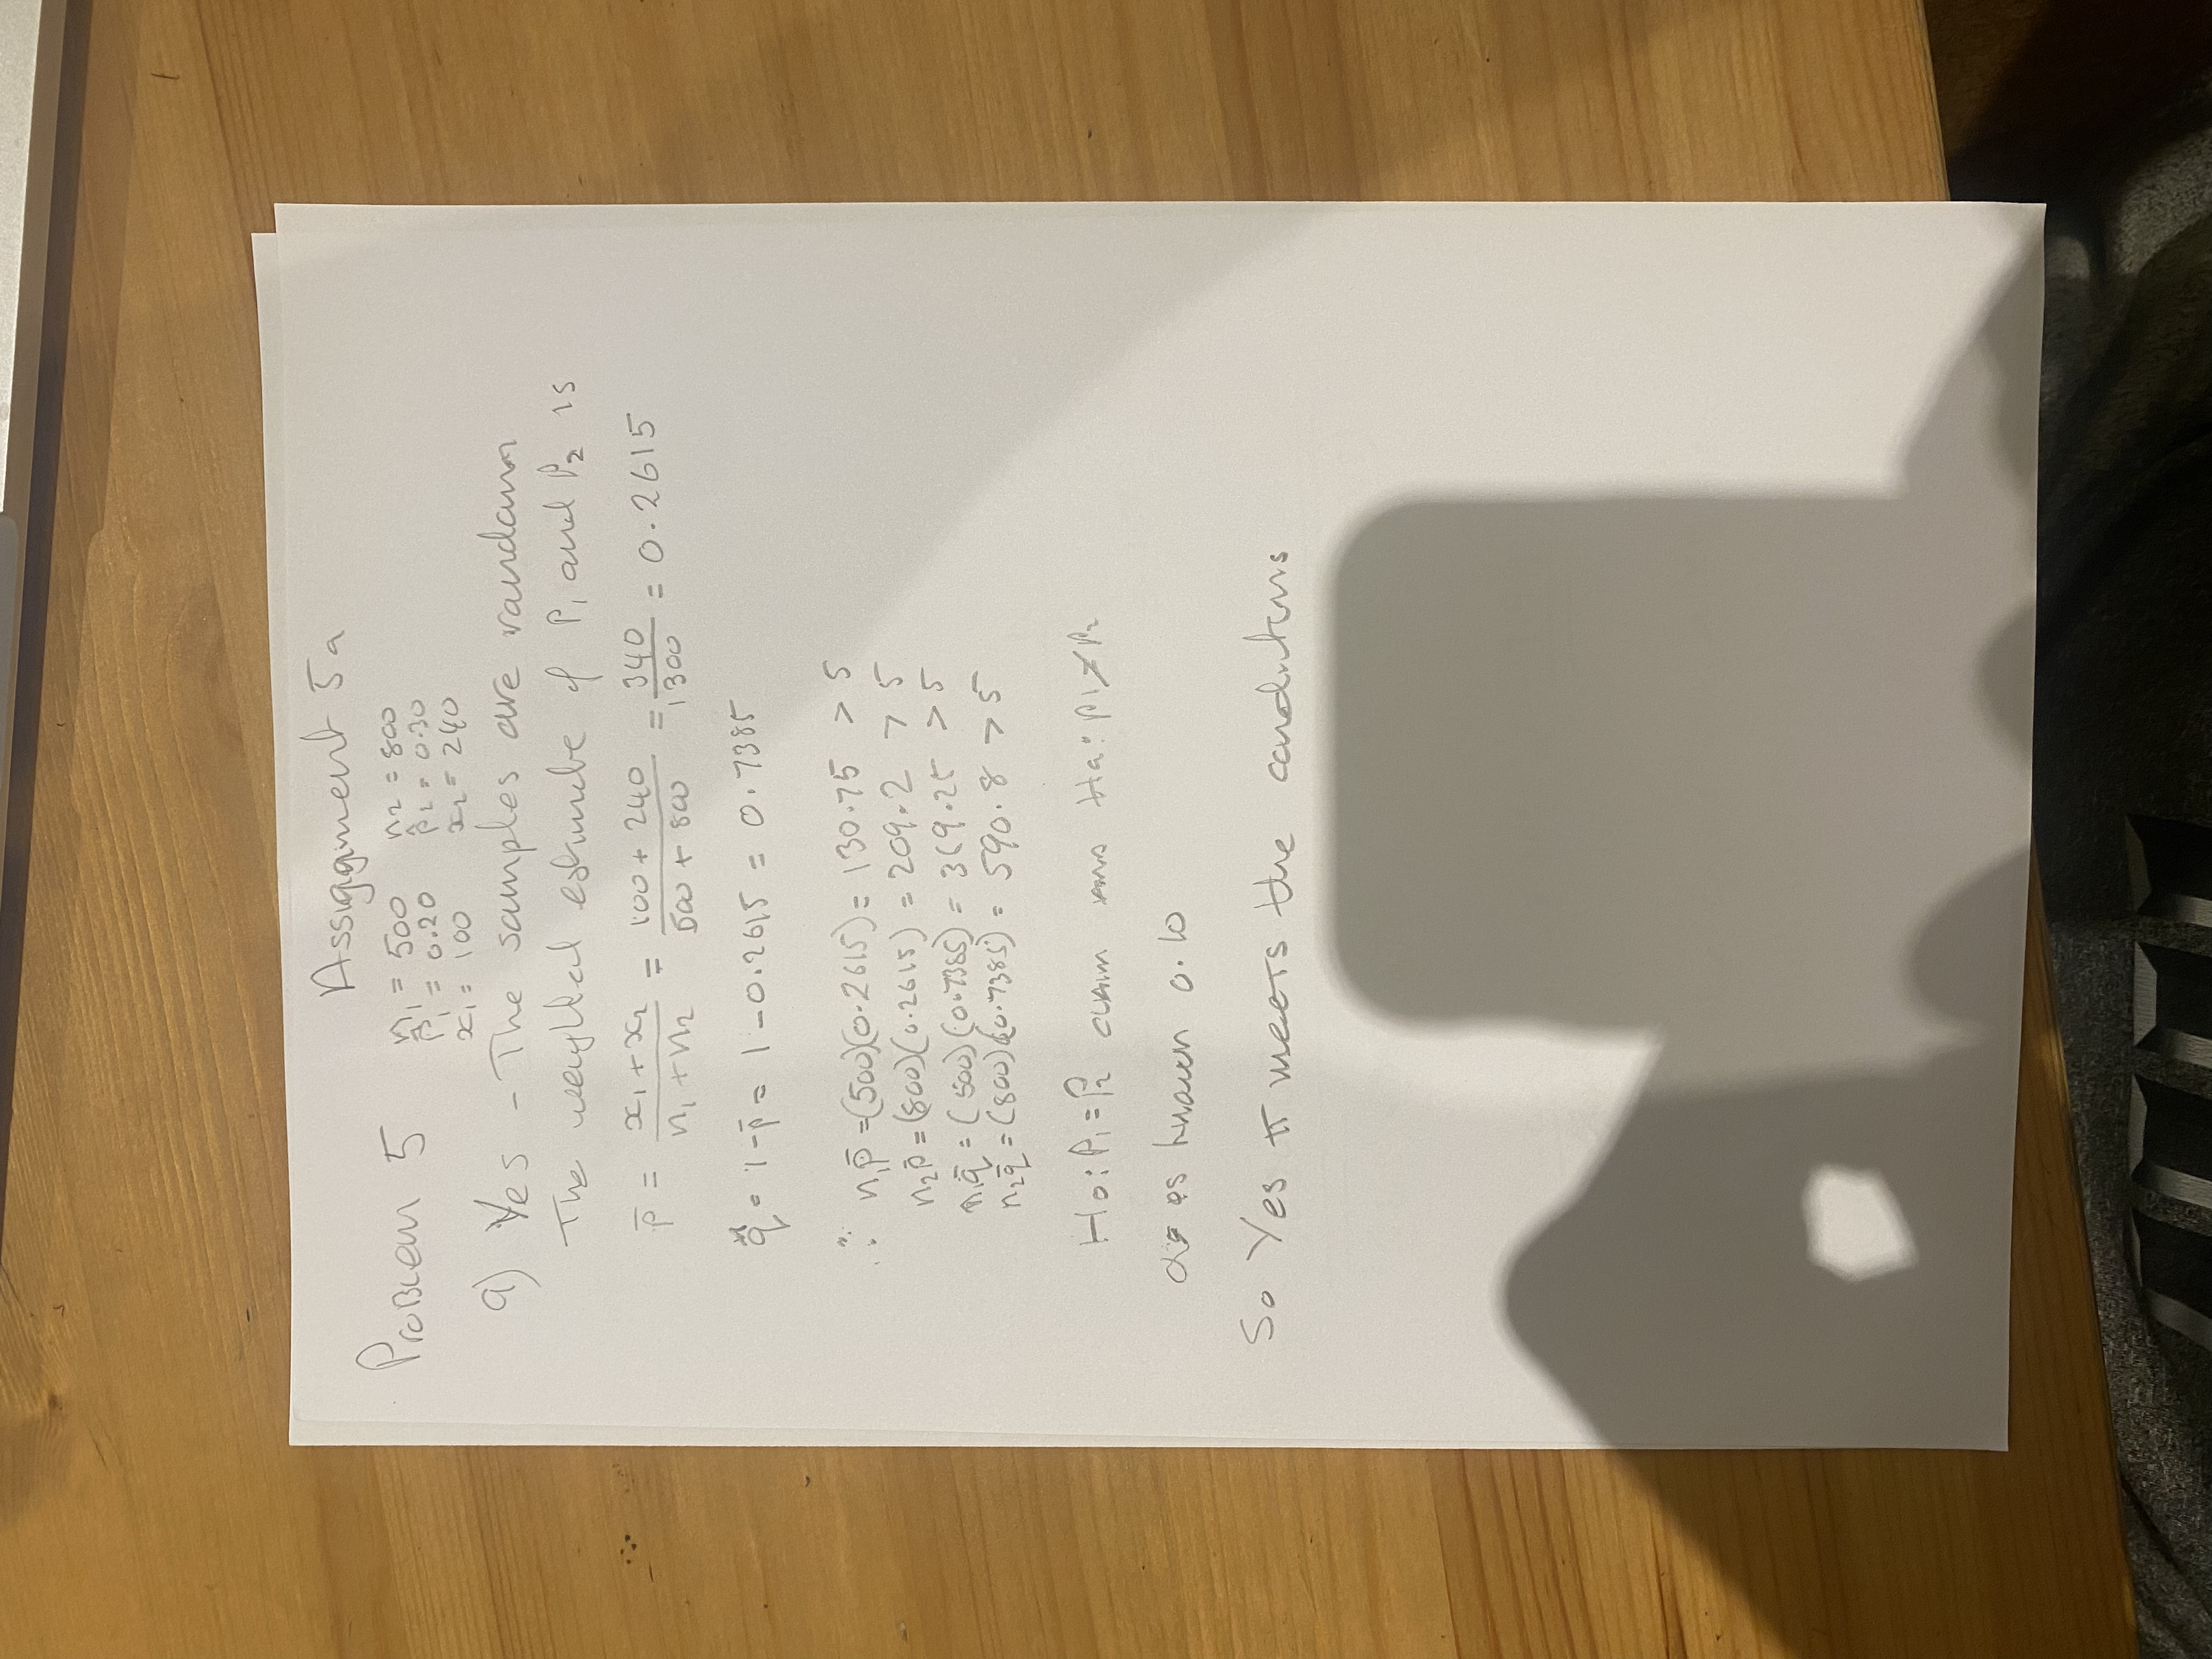 Assiggnment 5a
Problem 5
n1 = 500 n2 = 800
p̂1 = 0.20 p̂2 = 0.30
x1 = 100 x2 = 240
a) Yes - The samples are random
The weighted estimate of P1 and P2 is
p̄ = (x1 + x2)/(n1 + n2) = (100 + 240)/(500 + 800) = 340/1300 = 0.2615
q̄ = 1 - p̄ = 1 - 0.2615 = 0.7385
∴ n1p̄ = (500)(0.2615) = 130.75 > 5
n2p̄ = (800)(0.2615) = 209.2 > 5
n1q̄ = (500)(0.7385) = 369.25 > 5
n2q̄ = (800)(0.7385) = 590.8 > 5
Ho: P1 = P2 claim Ha: P1 ≠ P2
as known 0.10
So Yes it meets the conditions